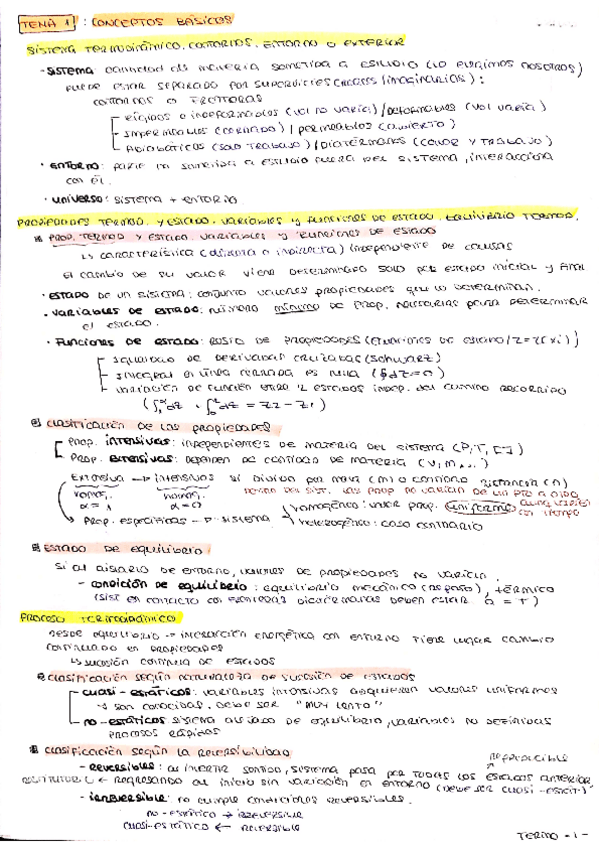 TEMA 1: CONCEPTOS BÁSICOS
SISTEMA TERMODINÁMICO. CONTORNOS. ENTORNO O EXTERIOR
- SISTEMA cantidad de materia sometida a estudio (lo elegimos nosotros)
puede estar separado por superficies (reales/imaginarias):
contornos o fronteras
rígidos o indeformables (vol no varía) / deformables (vol varía)
impermeables (cerrado) / permeables (abierto)
Adiabáticos (solo trabajo) / diatérmanos (calor y trabajo)
· ENTORNO: parte no sometida a estudio fuera del sistema, interacciona
con él.
· UNIVERSO: sistema + entorno
PROPIEDADES TERMOD. Y ESTADO. VARIABLES Y FUNCIONES DE ESTADO. EQUILIBRIO TERMOD.
PROP. TERMOD Y ESTADO. VARIABLES Y FUNCIONES DE ESTADO
↳ característica (directa o indirecta) independiente de causas
el cambio de su valor viene determinado solo por estado inicial y final
· ESTADO DE un sistema: conjunto valores propiedades que lo determinan.
· VARIABLES DE ESTADO: número mínimo de prop. necesarias para determinar
el estado.
· Funciones de estado: resto de propiedades (ecuaciones de estado / z = z(xi))
igualdad de derivadas cruzadas (Schwarz)
integral en línea cerrada es nula (∮dz=0)
variación de función entre 2 estados indep. del camino recorrido
= z2 - z1)
Clasificación de las propiedades
Prop. INTENSIVAS: independientes de materia del sistema (P, T, [ ])
Prop. EXTENSIVAS: dependen de cantidad de materia (V, m, ...)
Extensiva → intensivas si dividen por masa (m) o cantidad sustancia (n)
homog. α = 1 homog. α = 0
dentro del sist. las prop no varían de un pto a otro
aunque varíen con tiempo
↳ Prop. específicas → sistema
homogéneo: valor prop. uniforme
heterogéneo: caso contrario
ESTADO DE equilibrio
Si al aislarlo de entorno, valores de propiedades no varían
- condición de equilibrio: equilibrio mecánico (reposo), térmico
(sist en contacto con paredes diatérmanas deben estar a = T)
PROCESO TERMODINÁMICO
Desde equilibrio → interacción energética con entorno tiene lugar cambio
continuado en propiedades
↳ sucesión continua de estados
Clasificación según naturaleza de sucesión de estados
cuasi-estáticos: variables intensivas adquieren valores uniformes
↳ son conocidas, debe ser "muy lento"
no-estáticos sistema alejado de equilibrio, variables no definidas
procesos rápidos
Clasificación según la reversibilidad
- reversible: al invertir sentido, sistema pasa por todos los estados anterior
reproducible
← regresando al inicio sin variación en entorno (debe ser cuasi-estát)
- irreversible: no cumple condiciones reversibles.
no-estático → irreversible
cuasi-estático ← reversible
TERMO - 1 -